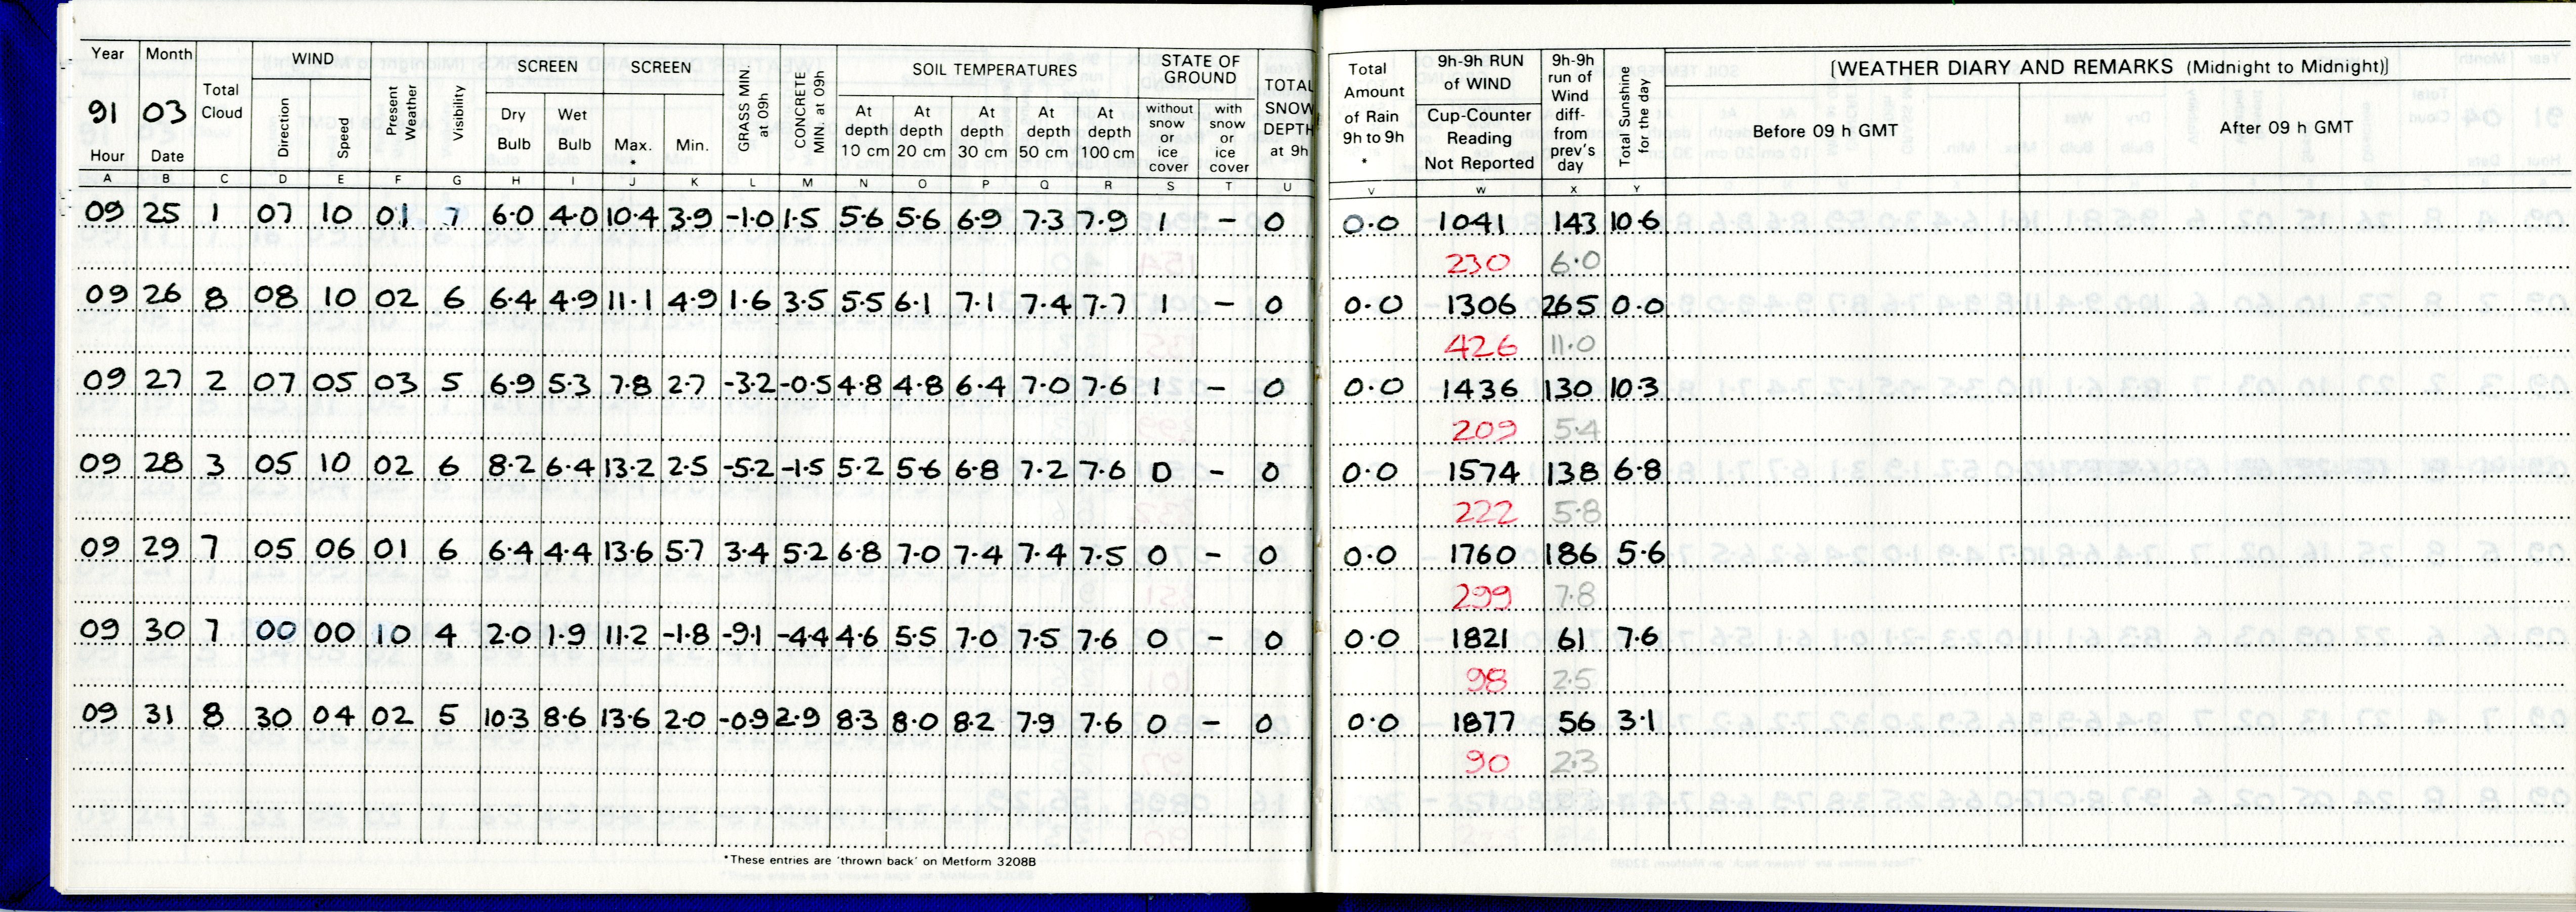 Year Month WIND SCREEN SCREEN SOIL TEMPERATURES STATE OF GROUND
91 03 Total Cloud Direction Speed Present Weather Visibility Dry Bulb Wet Bulb Max. * Min. GRASS MIN. at 09h CONCRETE MIN. at 09h At depth 10 cm At depth 20 cm At depth 30 cm At depth 50 cm At depth 100 cm without snow or ice cover with snow or ice cover TOTAL SNOW DEPTH at 9h
Hour Date
Total Amount of Rain 9h to 9h * 9h-9h RUN of WIND Cup-Counter Reading Not Reported 9h-9h run of Wind diff- from prev's day Total Sunshine for the day
[WEATHER DIARY AND REMARKS (Midnight to Midnight)]
Before 09 h GMT After 09 h GMT
A B C D E F G H I J K L M N O P Q R S T U V W X Y
09 25 1 07 10 01 7 6.0 4.0 10.4 3.9 -1.0 1.5 5.6 5.6 6.9 7.3 7.9 1 - 0 0.0 1041 143 10.6
230 6.0
09 26 8 08 10 02 6 6.4 4.9 11.1 4.9 1.6 3.5 5.5 6.1 7.1 7.4 7.7 1 - 0 0.0 1306 265 0.0
426 11.0
09 27 2 07 05 03 5 6.9 5.3 7.8 2.7 -3.2 -0.5 4.8 4.8 6.4 7.0 7.6 1 - 0 0.0 1436 130 10.3
209 5.4
09 28 3 05 10 02 6 8.2 6.4 13.2 2.5 -5.2 -1.5 5.2 5.6 6.8 7.2 7.6 0 - 0 0.0 1574 138 6.8
222 5.8
09 29 7 05 06 01 6 6.4 4.4 13.6 5.7 3.4 5.2 6.8 7.0 7.4 7.4 7.5 0 - 0 0.0 1760 186 5.6
299 7.8
09 30 7 00 00 10 4 2.0 1.9 11.2 -1.8 -9.1 -4.4 4.6 5.5 7.0 7.5 7.6 0 - 0 0.0 1821 61 7.6
98 2.5
09 31 8 30 04 02 5 10.3 8.6 13.6 2.0 -0.9 2.9 8.3 8.0 8.2 7.9 7.6 0 - 0 0.0 1877 56 3.1
90 2.3
*These entries are 'thrown back' on Metform 3208B